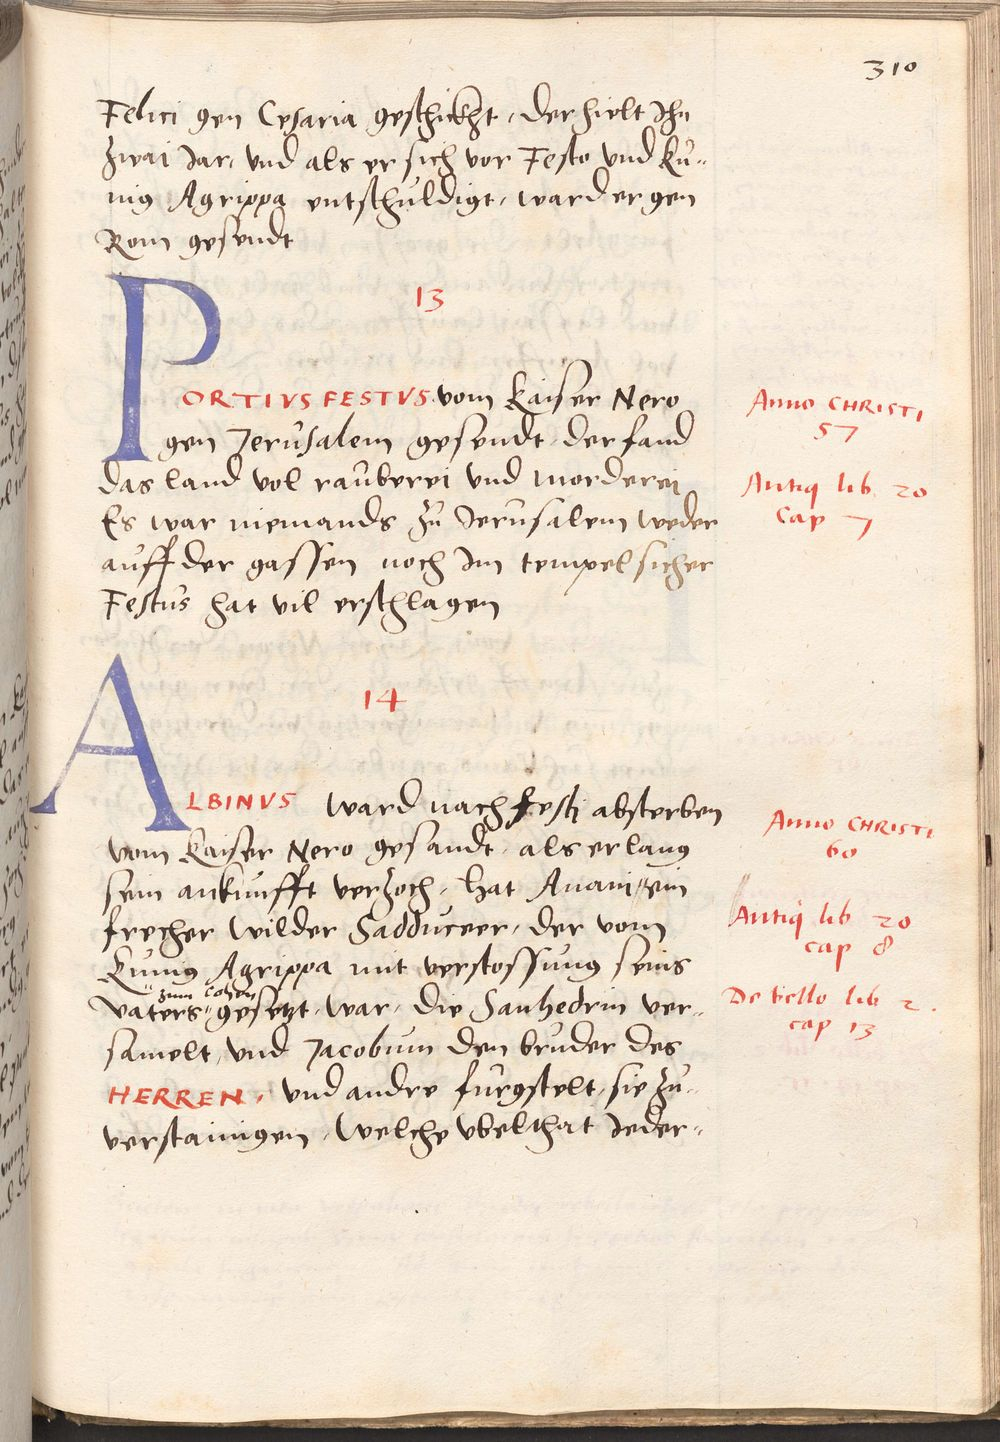 310
Felici gen Cesaria geschickht, der hielt Ihn
zwai Jar, vnd als er sich vor Festo vnd Ku-
nig Agrippa entschuldigt, ward er gen
Rom gesendt
13
PORTIVS FESTVS vom Kaiser Nero
gen Jerusalem gesendt, der fand
das land vol rauberei vnd morderei
Es war niemands zu Jerusalem weder
auff der gassen noch Im tempel sicher
Festus hat vil erschlagen
Anno CHRISTI
57
Antiq lib 20
Cap 7
14
ALBINVS ward nach festj absterben
vom Kaiser Nero gesandt, als er lang
sein ankunfft verzoch, hat Anani ein
frecher wilder Sadduceer, der vom
Kunig Agrippa mit verstossung seins
zum Cohen
vaters gesetzt war, die Sanhedrin ver-
samelt, vnd Jacobum den bruder des
HERREN, vnd andre furgstelt, sie zu
verstainigen, welche vbelthat Jeder-
Anno CHRISTI
60
Antiq lib 20
cap 8
De bello lib 2.
cap 13